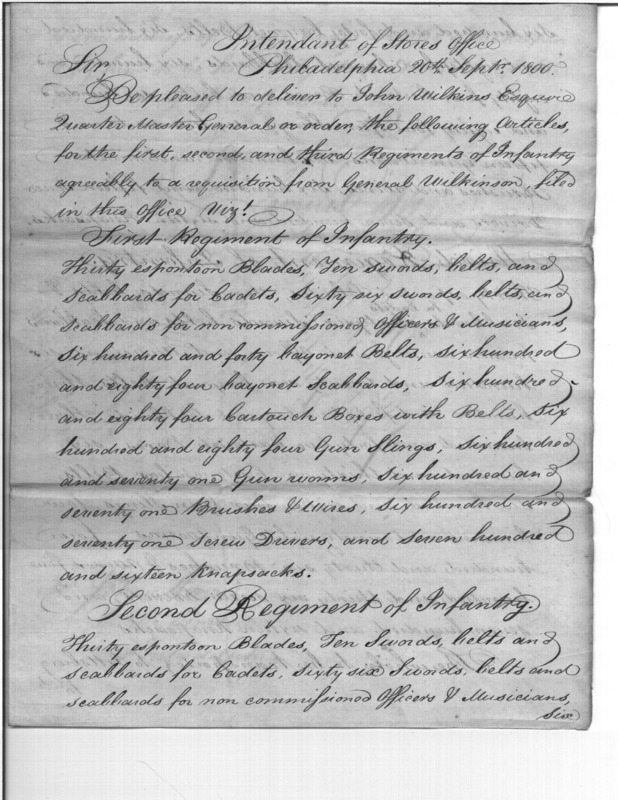 Intendant of Stores Office
Philadelphia 20th Septr. 1800.
Sir,
Be pleased to deliver to John Wilkins Esquire
Quarter Master General or order, the following Articles,
for the first, second, and third Regiments of Infantry
agreeably to a requisition from General Wilkinson, filed
in this Office Vizt.
First Regiment of Infantry.
Thirty espontoon Blades, Ten swords, belts, and
scabbards for Cadets, Sixty six swords, belts, and
scabbards for non commissioned Officers & Musicians,
six hundred and forty bayonet Belts, six hundred
and eighty four bayonet Scabbards, six hundred
and eighty four Cartouch Boxes with Belts, six
hundred and eighty four Gun Slings, six hundred
and seventy one Gun worms, six hundred and
seventy one Brushes & Wires, six hundred and
seventy one Screw Drivers, and seven hundred
and sixteen knapsacks.
Second Regiment of Infantry.
Thirty espontoon Blades, Ten Swords, belts and
scabbards for Cadets, sixty six Swords, belts and
scabbards for non commissioned Officers & Musicians,
six